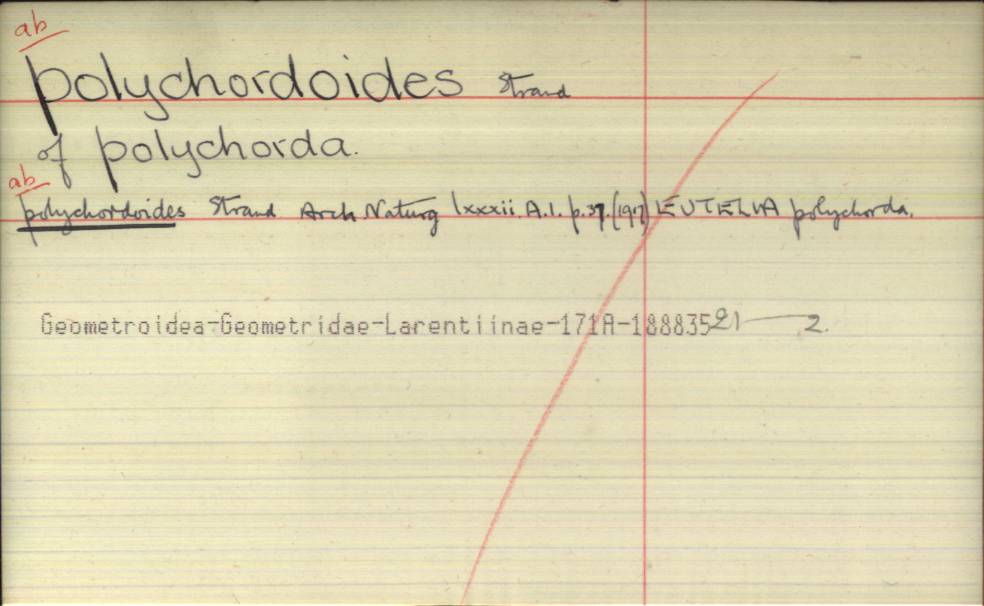 ab
polychordoides Strand
of polychorda.
ab
polychordoides Strand Arch. Naturg lxxxii. A.1. p.37. (1917) EUTELIA polychorda.
Geometroidea-Geometridae-Larentiinae-171A-18883521—2.